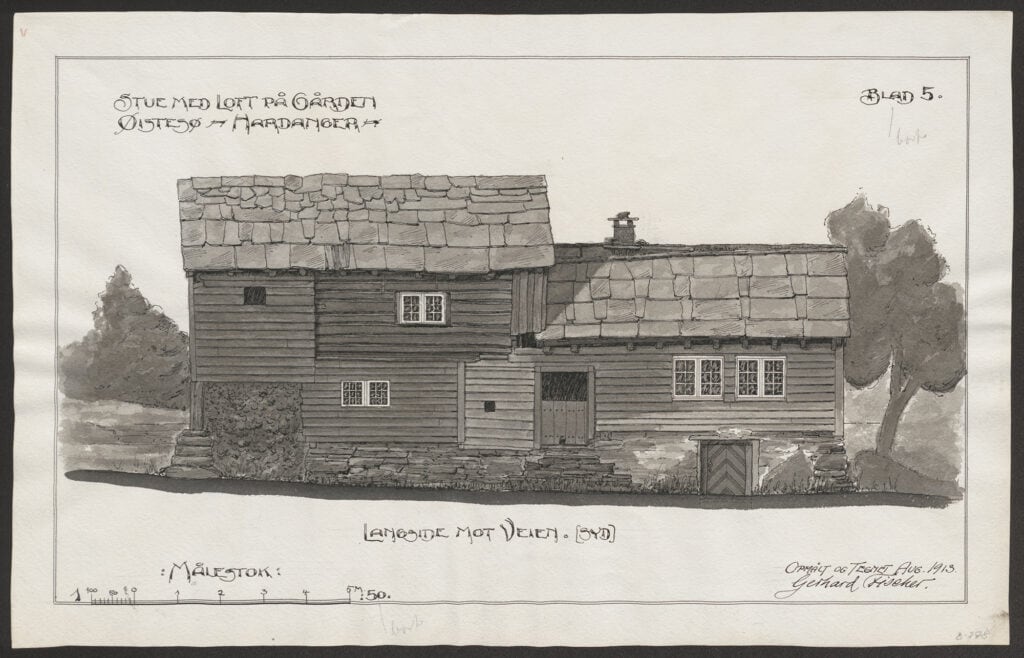 STUE MED LOFT PÅ GÅRDEN
ØISTESØ HARDANGER
BLAD 5.
bort
LANGSIDE MOT VEIEN. [SYD]
: MÅLESTOK :
1 1 2 3 4 5 M : 50.
bort
OPMÅLT OG TEGNET AUG. 1913.
Gerhard Fischer.